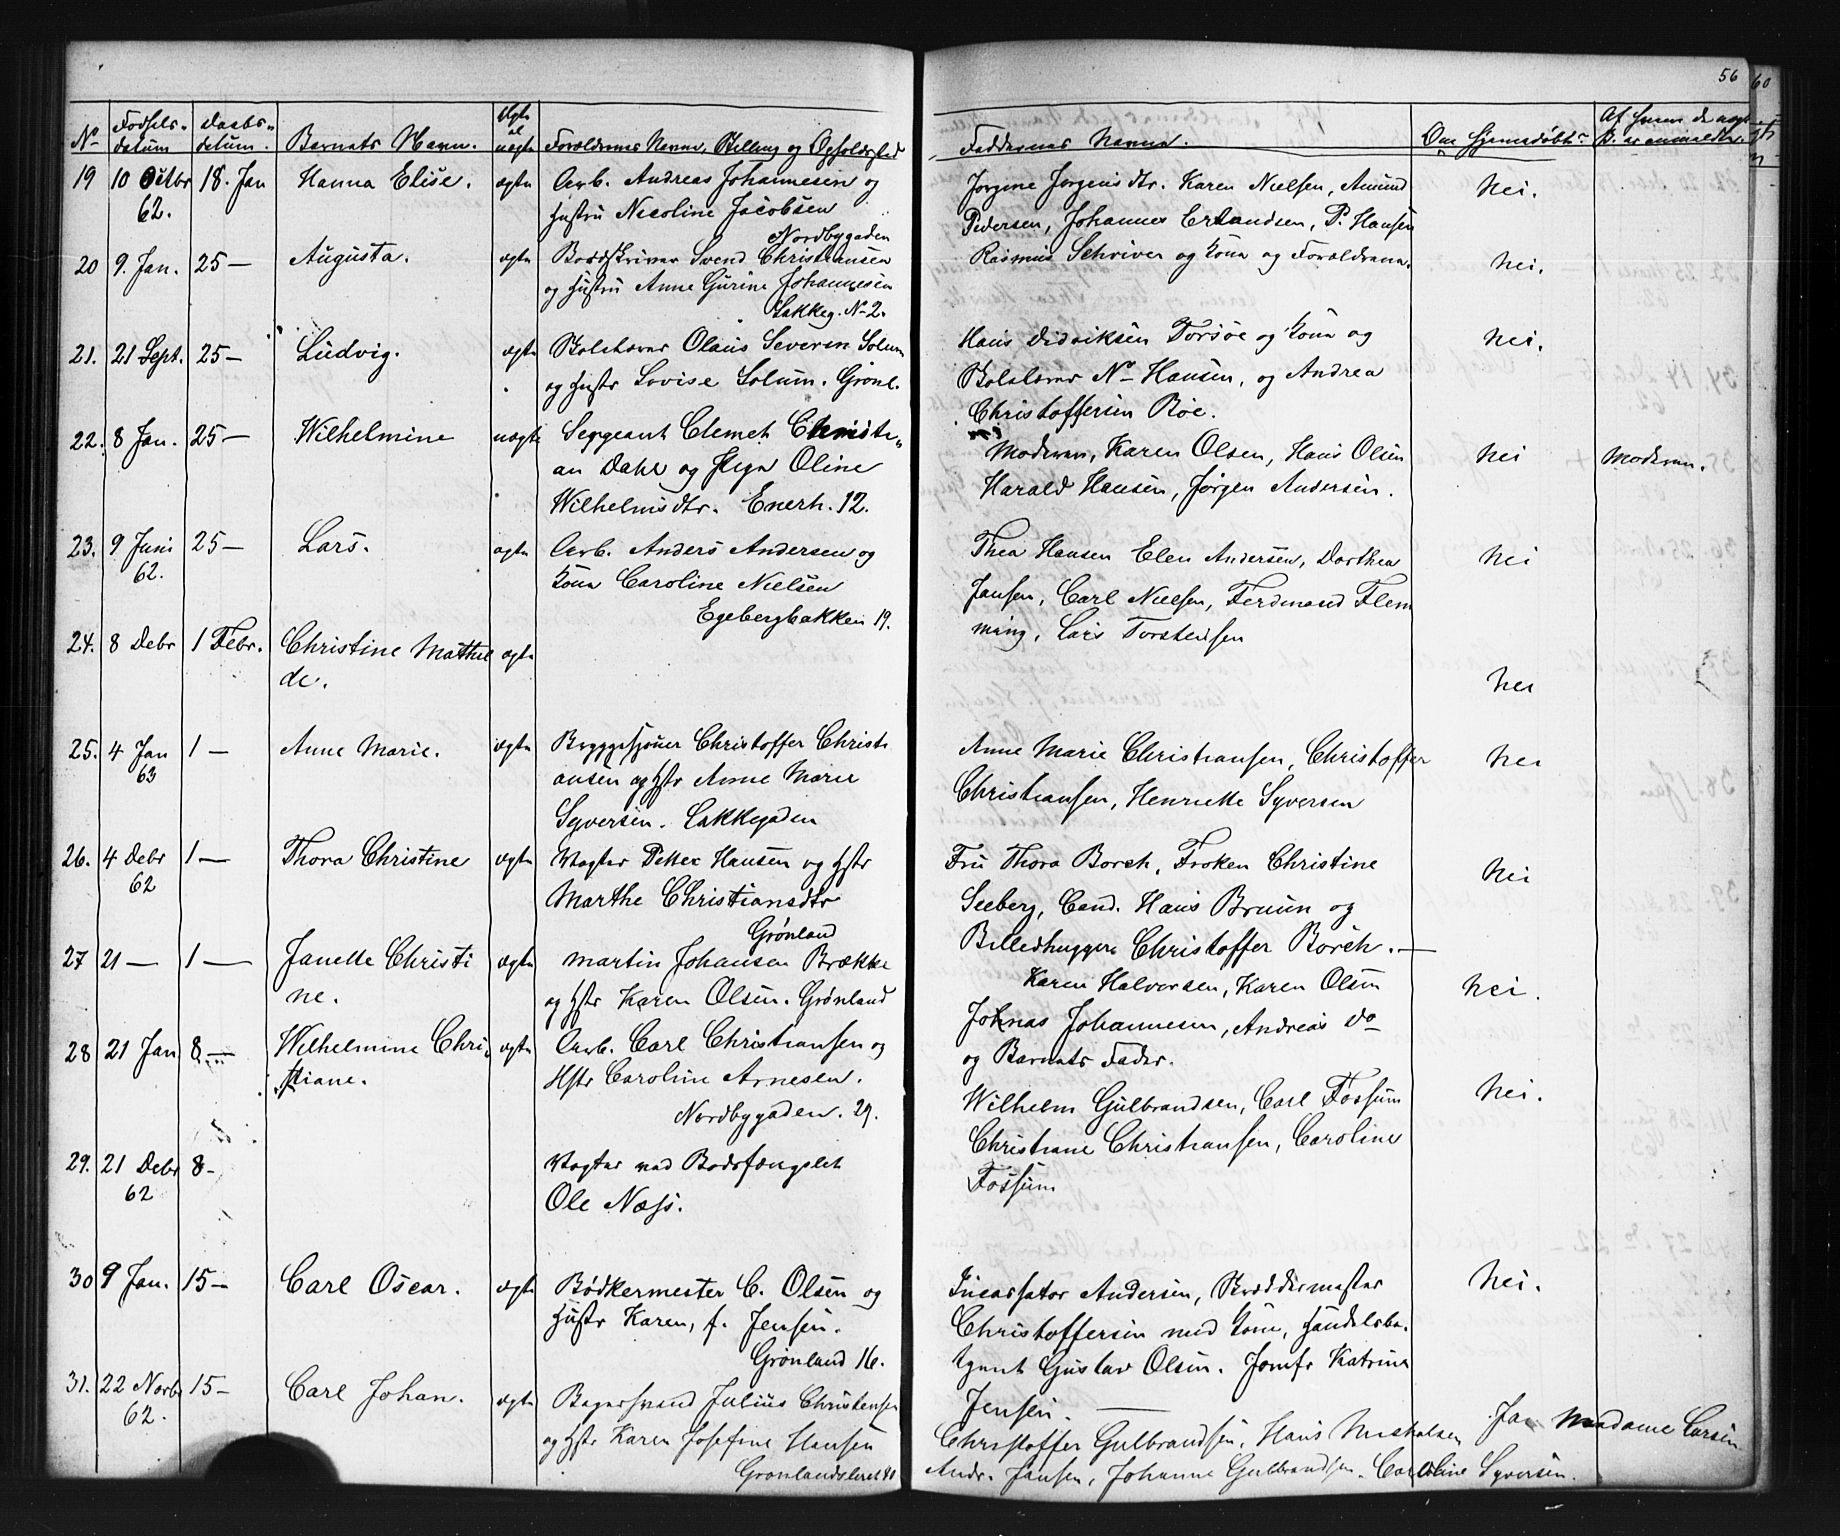 56
60
No
Fødsels-
datum
Daabs-
datum.
Barnets Navn.
Ægte
el
uægte
Forældrenes Navne, Stilling og Opholdssted
Faddernes Navne.
Om hjemmedøbt
19 10 Octbr 18. Jan Hanna Elise. ægte Arb. Andreas Johannesen og
62. Hustru Nicoline Jacobsen
Nordbygaden
Jørgine Jørgensdtr. Karen Nielsen, Amund
Pedersen, Johannes Erlandsen, P. Hansen
Nei.
20 9. Jan. 25 — Augusta. ægte Svend Christiansen
og Hustru Anne Gurine Johannesen
Lakkeg. No 2.
Rasmus Schriver og Kone og Forældrene.
Nei.
21. 21 Sept. 25 — Ludvig. ægte Olaus Severin Solum
og Hustr Lovise Solum. Grønl.
Hans Didriksen Torsøe og Kone og
N— Hansen, og Andrea
Christoffersen Röe.
Nei.
22. 8 Jan. 25 — Wilhelmine uægte Sergeant Clemet Christi-
an Dahl og Pigen Oline
Wilhelmsdtr. Enerh. 12.
Moderen, Karen Olsen, Hans Olsen
Harald Hansen, Jørgen Andersen.
Nei Moderen.
23. 9 Juni 25 — Lars. ægte Arb. Anders Andersen og
62. Kone Caroline Nielsen
Egebergbakken 19.
Thea Hansen Elen Andersen, Dorthea
Jansen, Carl Nielsen, Ferdinand Flem
ming, Lars Torstensen
Nei
24. 8 Debr 1 Febr. Christine Mathil ægte
de.
Nei
25. 4 Jan 1 — Anne Marie. ægte Bryggesjouer Christoffer Christi
63 ansen og Hstr Anne Marie
Syversen. Lakkegaden
Anne Marie Christiansen, Christoffer
Christiansen, Henriette Syversen
Nei
26. 4 Debr 1 — Thora Christine ægte Vægter Petter Hansen og Hstr
62 Marthe Christiansdtr
Grønland
Fru Thora Borch, Frøken Christine
Seeberg, Cand. Hans Bruun og
Billedhugger Christoffer Borch. —
Nei
27 21 — 1 — Janette Christi ægte Martin Johansen Brække
ne. og Hstr Karen Olsen. Grønland
Karen Halvorsen, Karen Olsen
Johnas Johannesen, Andreas Do
og Barnets Fader.
Nei.
28 21 Jan 8 — Wilhelmine Chri- ægte Arb. Carl Christiansen og
stiane. Hstr Caroline Arnesen.
Nordbygaden. 29.
Wilhelm Gulbrandsen, Carl Fossum
Christiane Christiansen, Caroline
Fossum
Nei.
29. 21 Debr 8 - Vægter ved Bodsfængslet
62 Ole Næss.
30 9 Jan. 15 — Carl Oscar. ægte Bødkermester C. Olsen og
Hustr Karen, f. Jensen.
Grønland 16.
Incassator Andersen,
Christoffersen med Kone, Handelsbe.
tjent Gustav Olsen. Jomfr Katrine
Jensen. —
Nei.
31. 22 Novbr 15 — Carl Johan. ægte Bagersvend Julius Christensen
62. og Hstr Karen Josefine Hansen
Grønlandsleret
Christoffer Gulbrandsen, Hans
Andr. Jansen, Johanne Gulbrandsen. Caroline Syversen.
Ja Madame Larsen